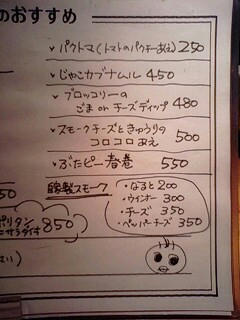 のおすすめ
✓ パクトマ(トマトのパクチーあえ) 250
✓ じゃこカブナムル 450
✓ ブロッコリーの
ごま on チーズディップ 480
✓ スモークチーズときゅうりの
コロコロあえ 500
✓ ぶたピー春巻 550
自家製スモーク
・なると 200
・ウインナー 300
・チーズ 350
・ペッパーチーズ 350
50
ポリタン
ニサラダ付 850
さい)